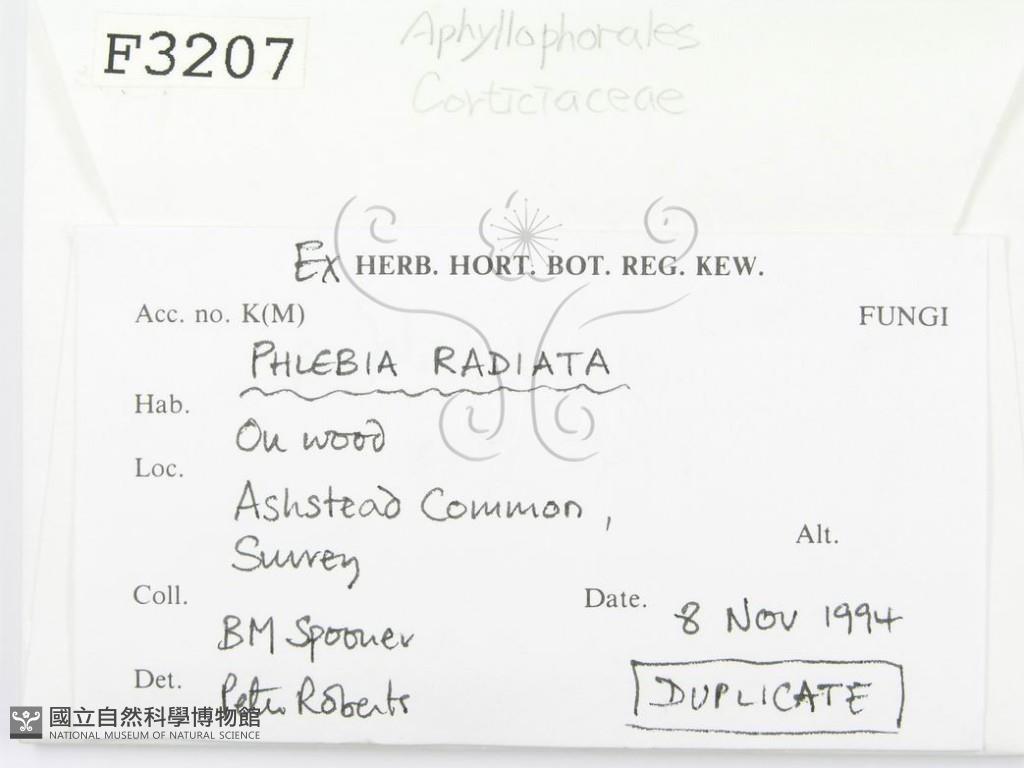 F3207
Aphyllophorales
Corticiaceae
Ex HERB. HORT. BOT. REG. KEW.
Acc. no. K(M)
FUNGI
PHLEBIA RADIATA
Hab.
On wood
Loc.
Ashstead Common,
Surrey
Alt.
Coll.
BM Spooner
Date. 8 Nov 1994
Det.
Peter Roberts
DUPLICATE
國立自然科學博物館
NATIONAL MUSEUM OF NATURAL SCIENCE